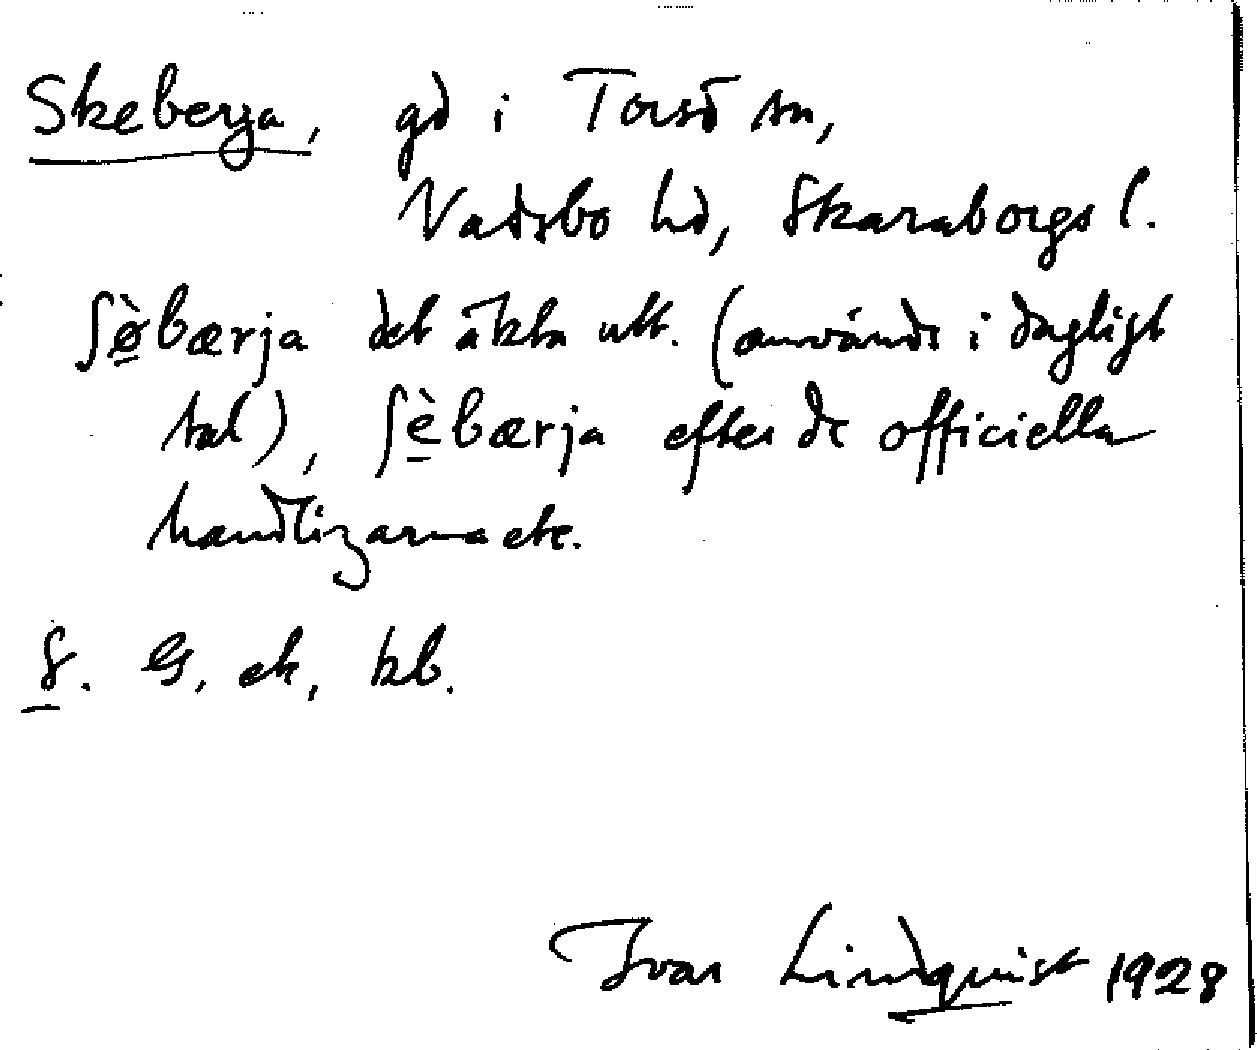 Skeberja, gd i Torsö sn,
Vadsbo hd, Skaraborgs l.
ʃø̀bærja det äkta utt. (används i dagligt
tal), ʃèbærja efter de officiella
handlingarna etc.
G, ek, kb.
Ivar Lindquist 1928